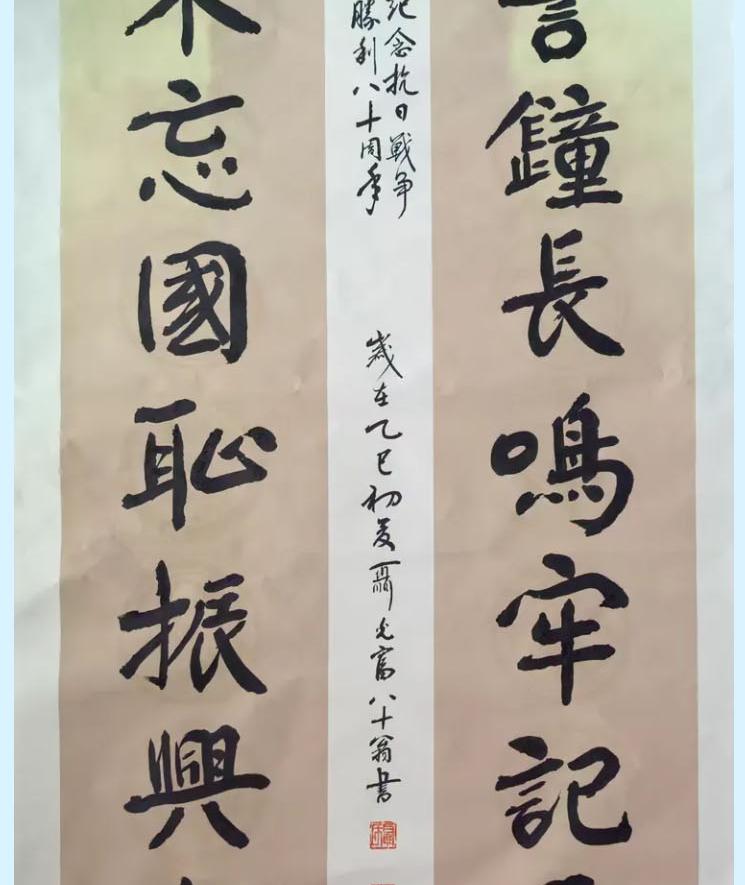 鐘長鳴牢記
紀念抗日戰争
勝利八十周年
歲在乙巳初夏聶光富八十翁書
不忘國恥振興